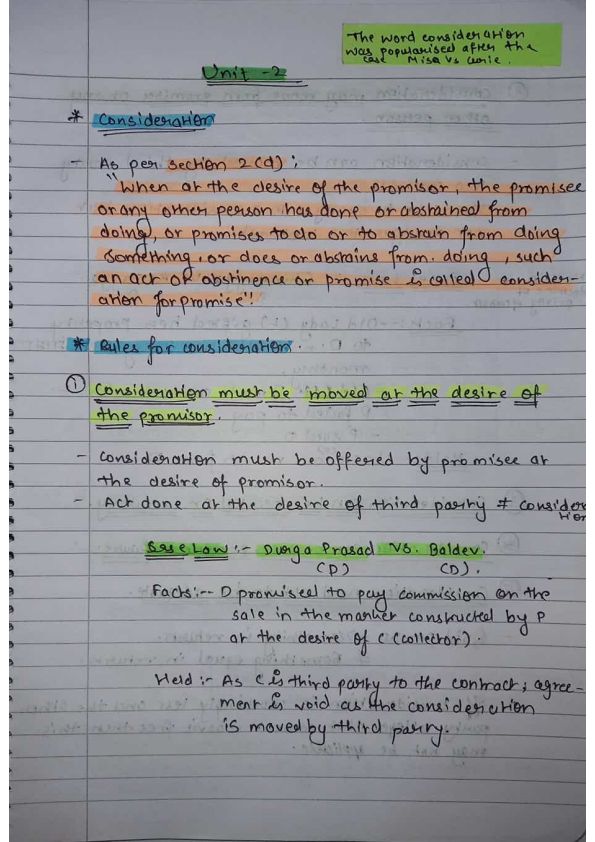 The word consideration
was popularised after the
case Misa vs Curie.
Unit -2
* Consideration
- As per section 2(d) :
"When at the desire of the promisor, the promisee
or any other person has done or abstained from
doing, or promises to do or to abstain from doing
something, or does or abstains from. doing, such
an act of abstinence or promise is called consider-
ation for promise".
* Rules for consideration.
① Consideration must be moved at the desire of
the promisor.
- Consideration must be offered by promisee at
the desire of promisor.
- Act done at the desire of third party ≠ consider
tion
Case Law :- Durga Prasad vs. Baldev.
(P) (D).
Facts:-- D promised to pay commission on the
sale in the market constructed by P
at the desire of C (collector).
Held :- As C is third party to the contract; agree-
ment is void as the consideration
is moved by third party.